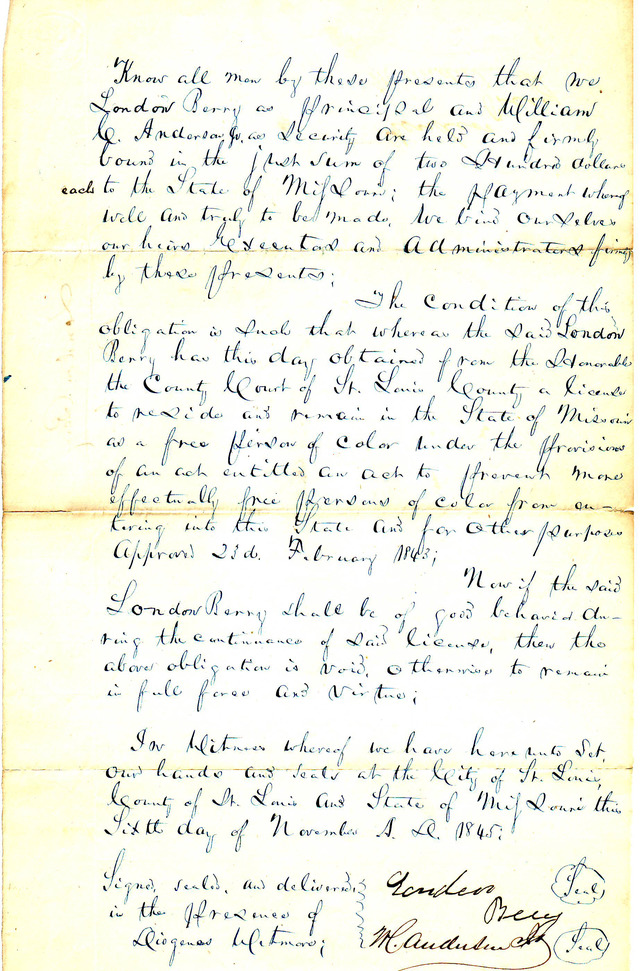 Know all men by these presents that we
London Berry as principal and William
C. Anderson Jr, as Security are held and firmly
bound in the just sum of two Hundred dollars
each to the State of Missouri; the payment whereof
well and truly to be made, We bind ourselves
our heirs Executors and Administrators firmly
by these presents;
The Condition of this
obligation is such that whereas the said London
Berry has this day obtained from the Honorable
the County Court of St. Louis County a license
to reside and remain in the State of Missouri
as a free person of color under the provisions
of an act entitled an act to prevent more
effectually free persons of color from en-
tering into this State and for other purposes
Approved 23d. February 1843;
Now if the said
London Berry shall be of good behavior du-
ring the continuance of said license, then the
above obligation is void, otherwise to remain
in full force and virtue;
In Witness whereof we have hereunto set
our hands and seals at the City of St. Louis,
County of St. Louis and State of Missouri this
Sixth day of November A. D. 1845;
Signed, seald, and delivered, London (Seal)
in the presence of Berry
Diogenes Wetmore; W C Anderson Jr (Seal)